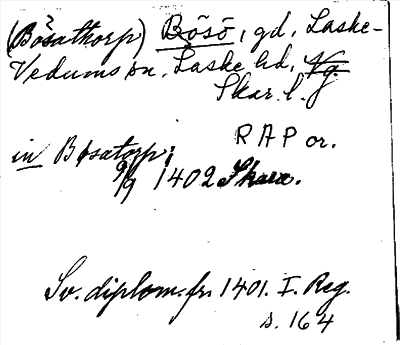 (Bösathorp) Bösö, gd, Laske-
Vedums sn, Laske hd, Vg.
Skar. l.
RAP or.
in Bosatorp;
9/9 1402 Skara.
Sv. diplom. fr. 1401. I. Reg.
s. 164